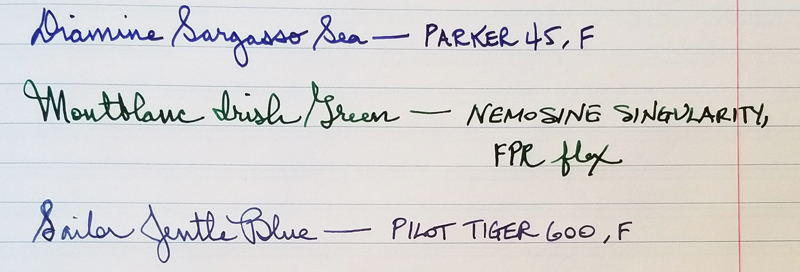 Diamine Sargasso Sea — PARKER 45, F
Montblanc Irish Green — NEMOSINE SINGULARITY,
FPR flex
Sailor Jentle Blue — PILOT TIGER 600, F